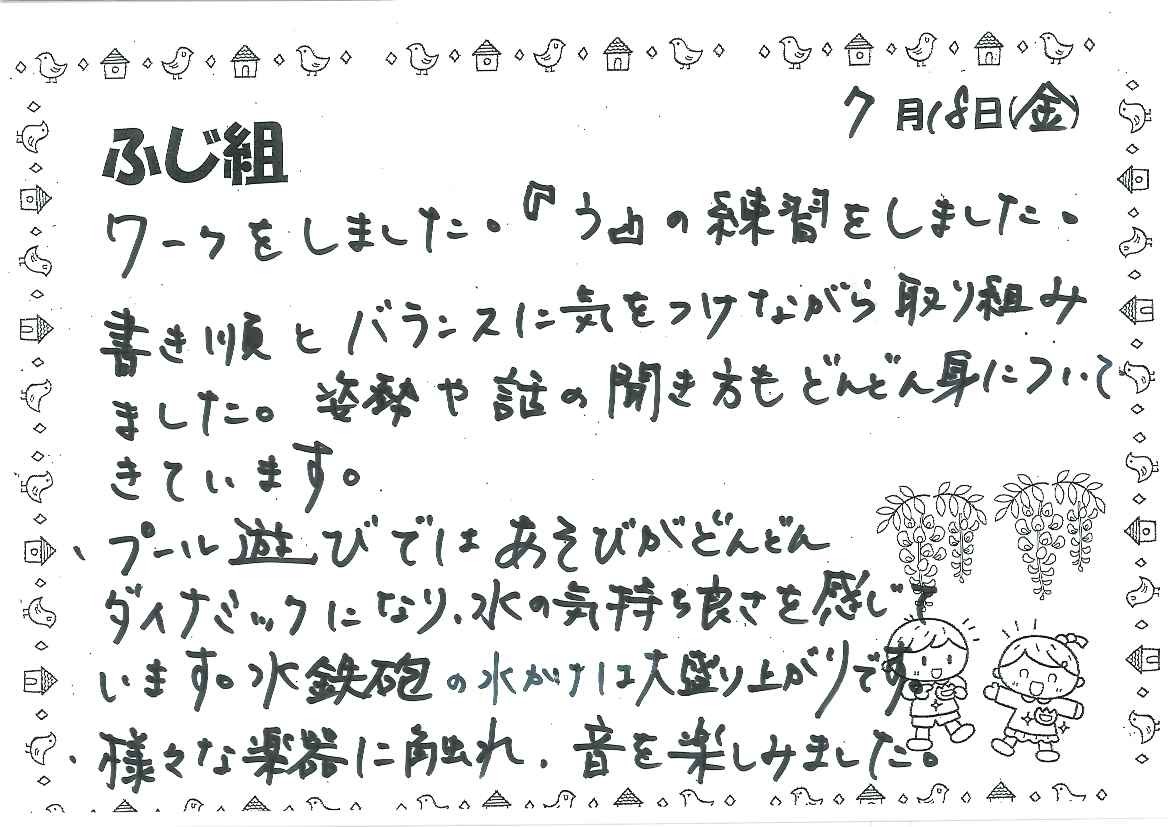 7月18日(金)
ふじ組
ワークをしました。『う』の練習をしました。
書き順とバランスに気をつけながら取り組み
ました。姿勢や話の聞き方もどんどん身について
きています。
、プール遊びではあそびがどんどん
ダイナミックになり、水の気持ち良さを感じて
います。水鉄砲の水かけは大盛り上がりです。
、様々な楽器に触れ、音を楽しみました。